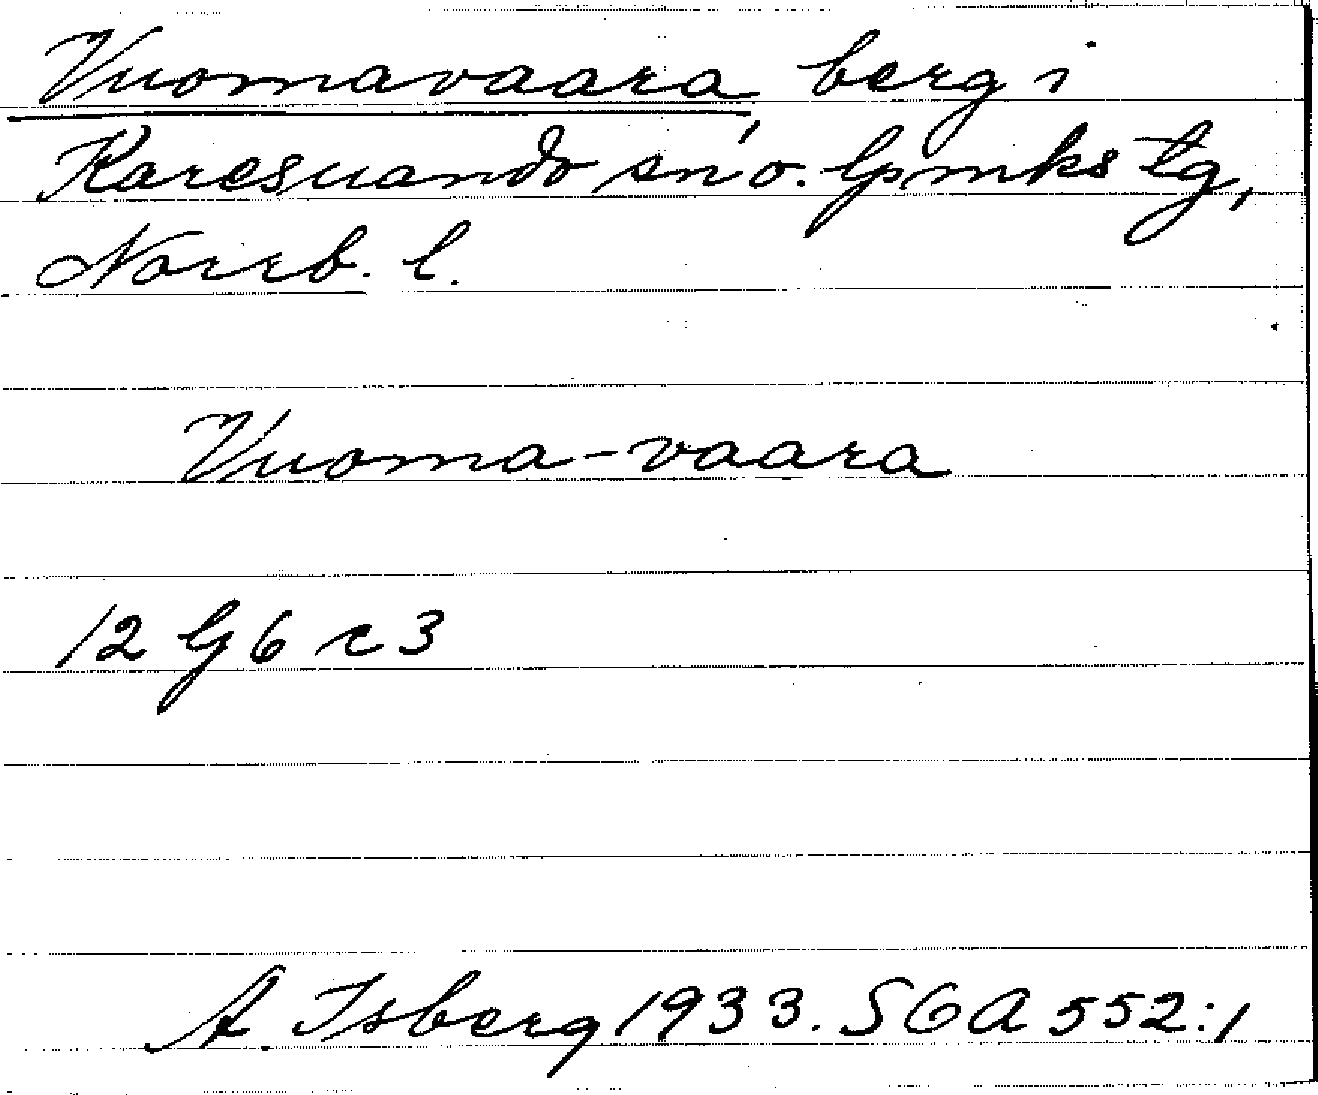 Vuomavaara, berg i
Karesuando sn o. lpmks tg,
Norrb. l.
Vuoma-vaara
12 G 6 c 3
A. Isberg 1933. SOA 552:1